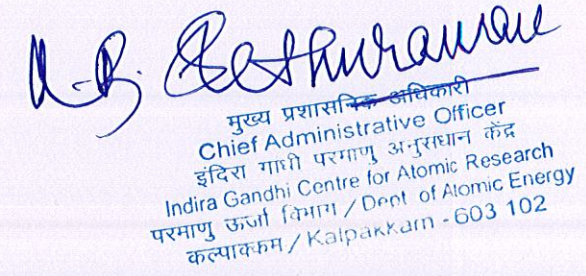 मुख्य प्रशासनिक अधिकारी
Chief Administrative Officer
इंदिरा गांधी परमाणु अनुसंधान केंद्र
Indira Gandhi Centre for Atomic Research
परमाणु ऊर्जा विभाग / Dept. of Atomic Energy
कल्पाक्कम / Kalpakkam - 603 102